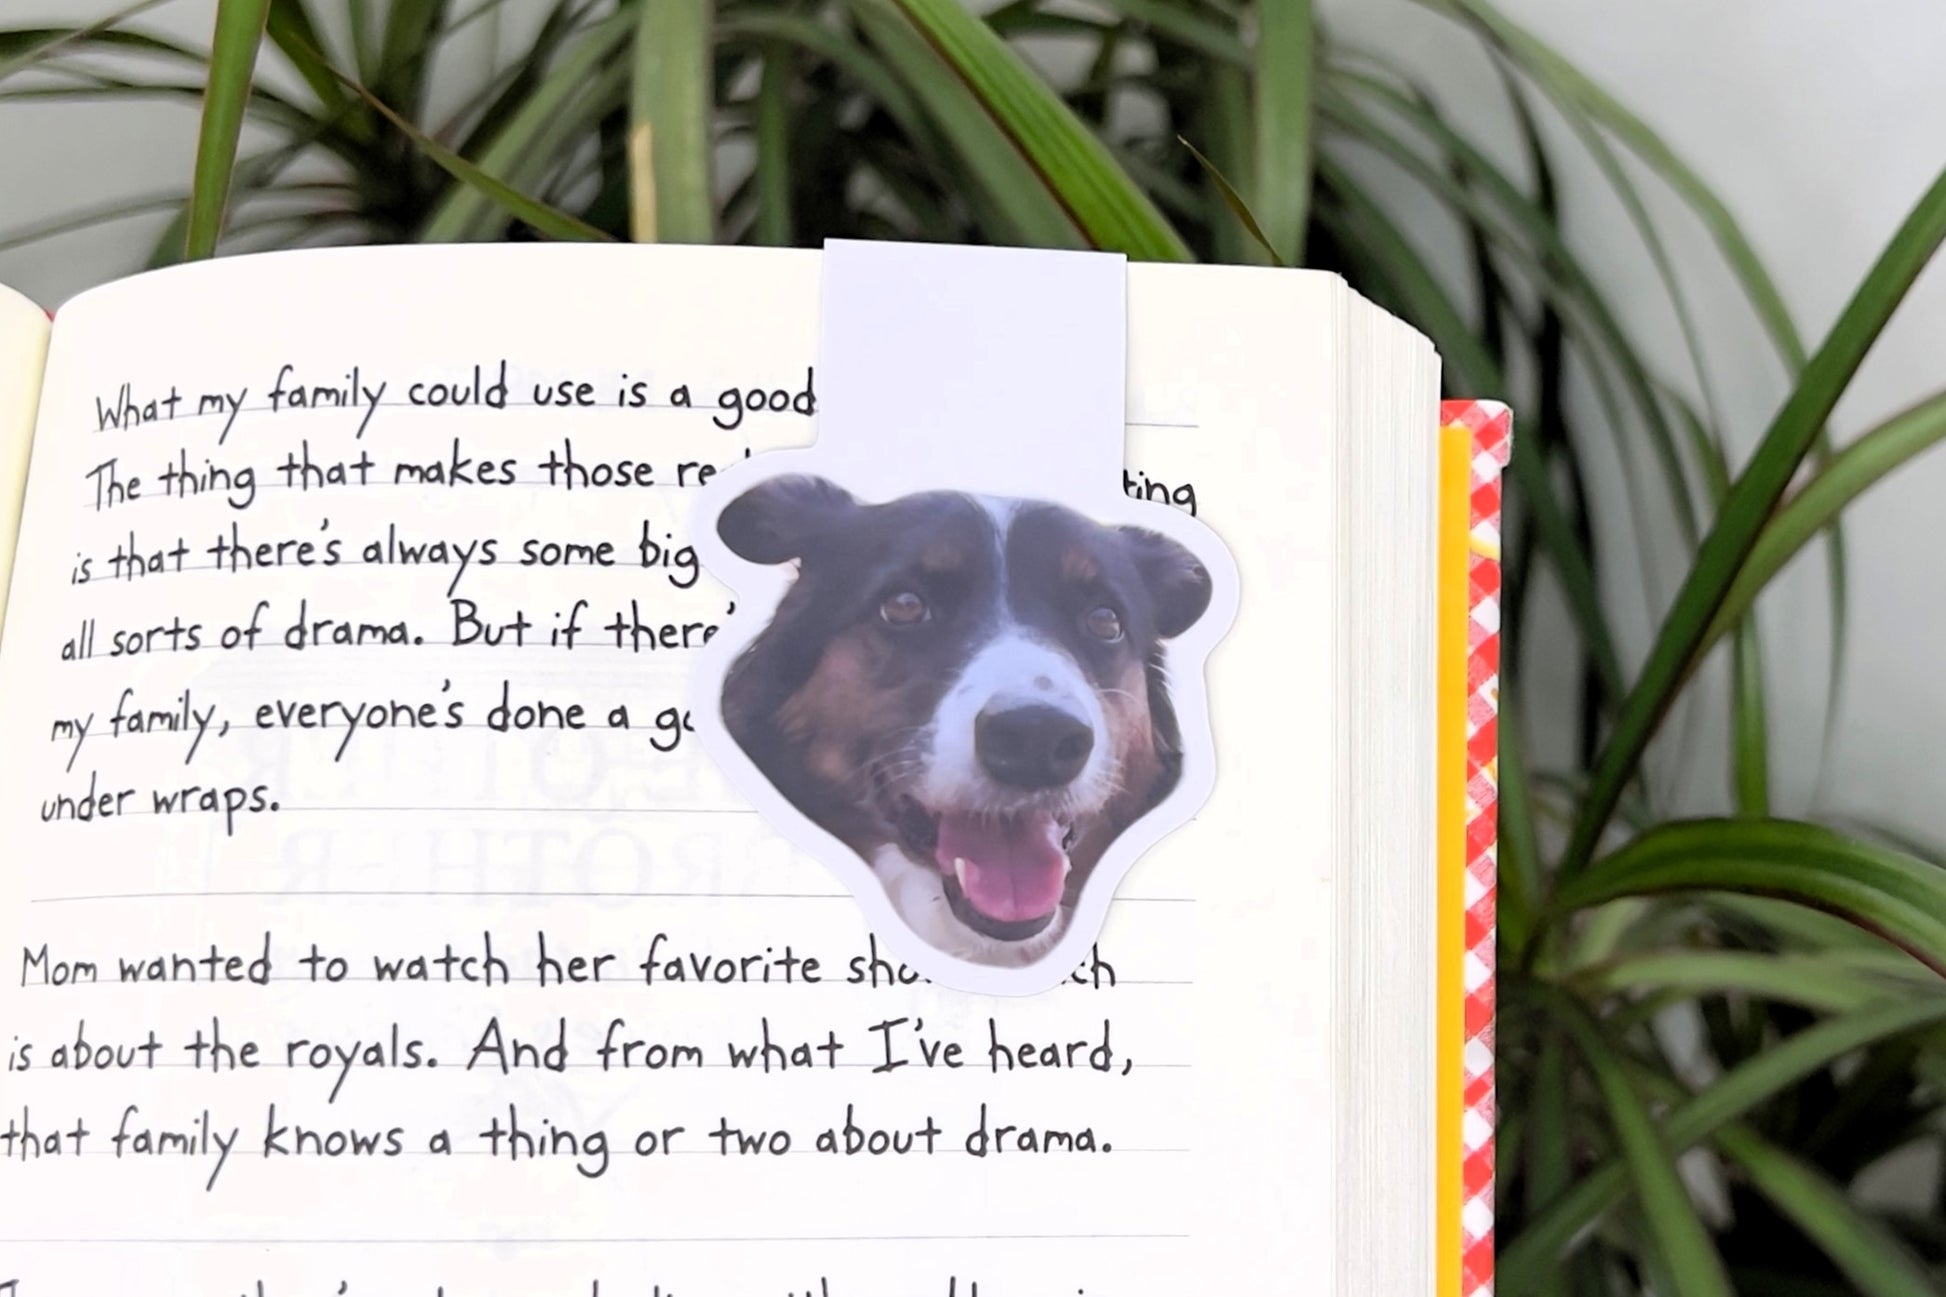 What my family could use is a good
The thing that makes those
is that there's always some big
all sorts of drama. But if there's
my family, everyone's done a
under wraps.
Mom wanted to watch her favorite
is about the royals. And from what I've heard,
that family knows a thing or two about drama.